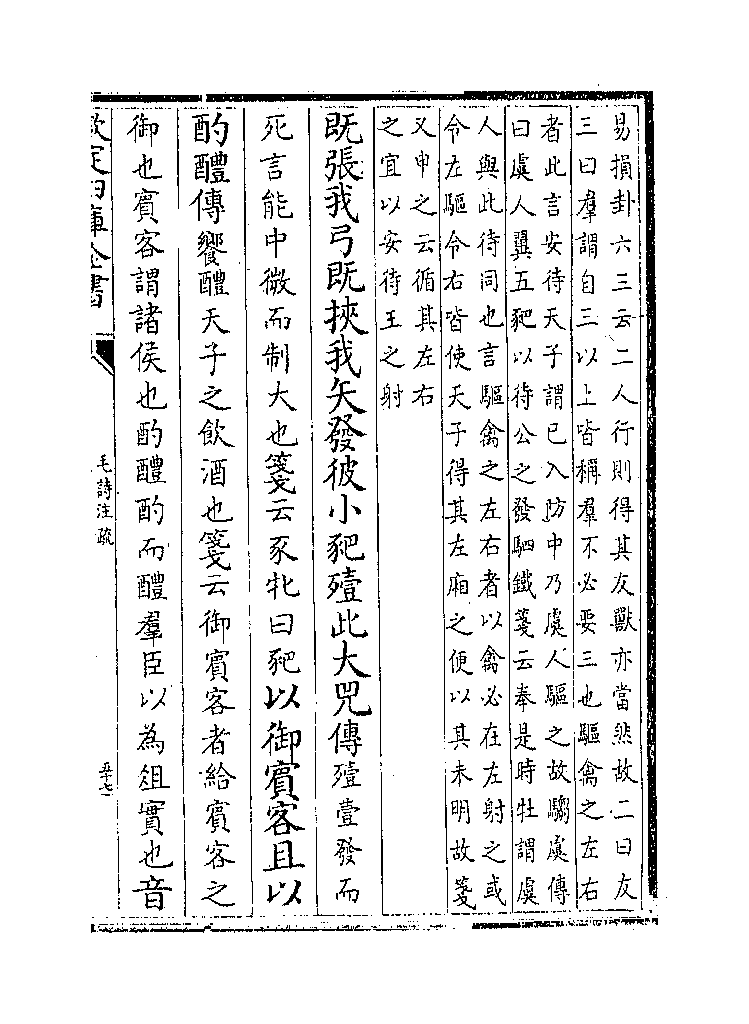 易損卦六三云二人行則得其友獸亦當然故二曰友
三曰羣謂自三以上皆稱羣不必要三也驅禽之左右
者此言安待天子謂已入防中乃虞人驅之故騶虞傳
曰虞人翼五豝以待公之發駟鐵箋云奉是時牡謂虞
人與此待同也言驅禽之左右者以禽必在左射之或
令左驅令右皆使天子得其左廂之便以其未明故箋
又申之云循其左右
之宜以安待王之射
既張我弓既挾我矢發彼小豝殪此大兕傳殪壹發而
死言能中微而制大也箋云豕牝曰豝以御賓客且以
酌醴傳饗醴天子之飲酒也箋云御賓客者給賓客之
御也賓客謂諸侯也酌醴酌而醴羣臣以為俎實也音
欽定四庫全書
毛詩注疏
五十七